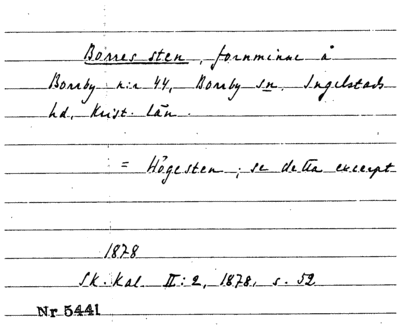 Borres sten, fornminne å
Borrby n:r 44, Borrby sn, Ingelstads
hd, Krist. län.
= Högesten; se detta excerpt
1878
Sk. Kal. II:2, 1878, s. 52
Nr 5441